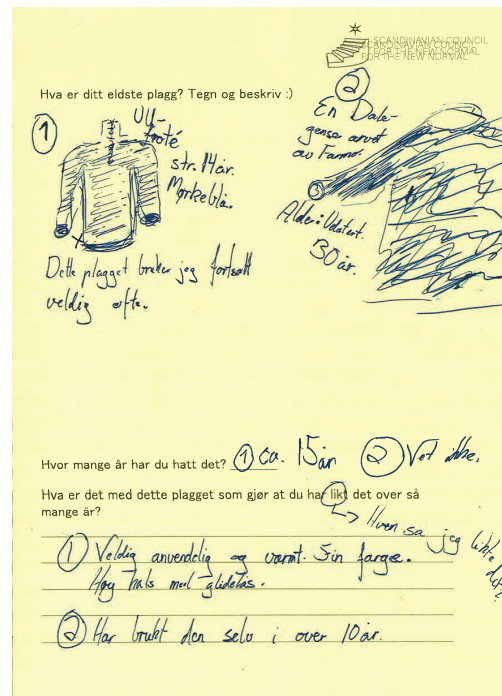 SCANDINAVIAN COUNCIL
FOR THE NEW NORMAL
Hva er ditt eldste plagg? Tegn og beskriv :)
1
Ull-
froté
str. 14 år.
Mørkeblå.
Dette plagget bruker jeg fortsatt
veldig ofte.
2
En Dale-
genser arvet
av Farmor.
Alder: Udatert.
130 år.
Hvor mange år har du hatt det? 1 ca. 15 år 2 Vet ikke.
Hva er det med dette plagget som gjør at du har likt det over så
mange år?
Hvem sa jeg likte det?
1 Veldig anvendelig og varmt. Fin farge.
Høy hals med glidelås.
2 Har brukt den selv i over 10 år.